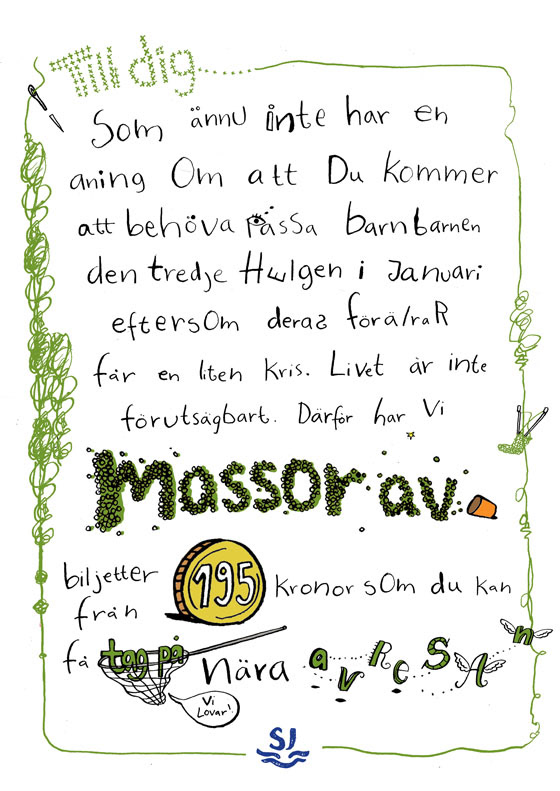 Till dig
Som ännu inte har en
aning Om att Du kommer
att behöva passa barnbarnen
den tredje Helgen i Januari
eftersom deras föräldrar
får en liten kris. Livet är inte
förutsägbart. Därför har Vi
Massor av
biljetter från 195 kronor som du kan
få tag på nära avresan
Vi Lovar!
SJ